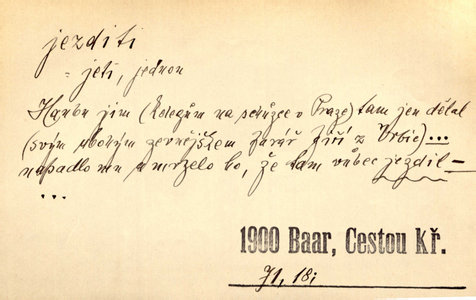 jezditi
= jeti, jednou
Hanbu jim (kolegům na schůzce v Praze) tam jen dělal
(svým ubohým zevnějškem farář Jiří z Vrbic) ...
napadlo mu a mrzelo ho, že tam vůbec jezdil –
...
1900 Baar, Cestou Kř.
71, 18i